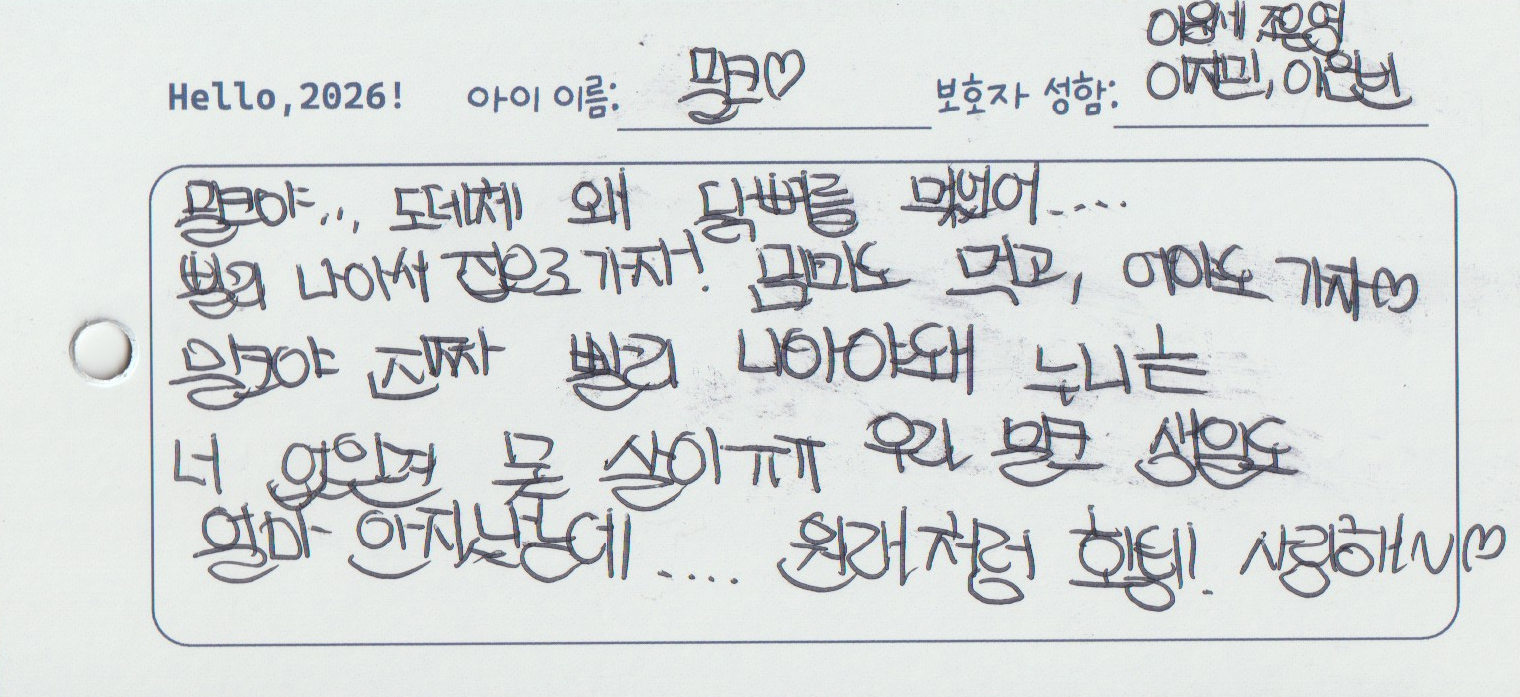 Hello, 2026! 아이 이름: 밀크♡ 보호자 성함: 조은영
이지민, 이은빈
밀크야... 도데체 왜 닭뼈를 먹었어....
빨리 나아서 집으로 가자! 밥미도 먹고, 여아도 가자♡
밀크야 진짜 빨리 나아야돼 누나는
너 없인져 못 살아ㅠㅠ 우리 밀크 생일도
얼마 안지났는데.... 원래처럼 화팅!. 사랑해~♡